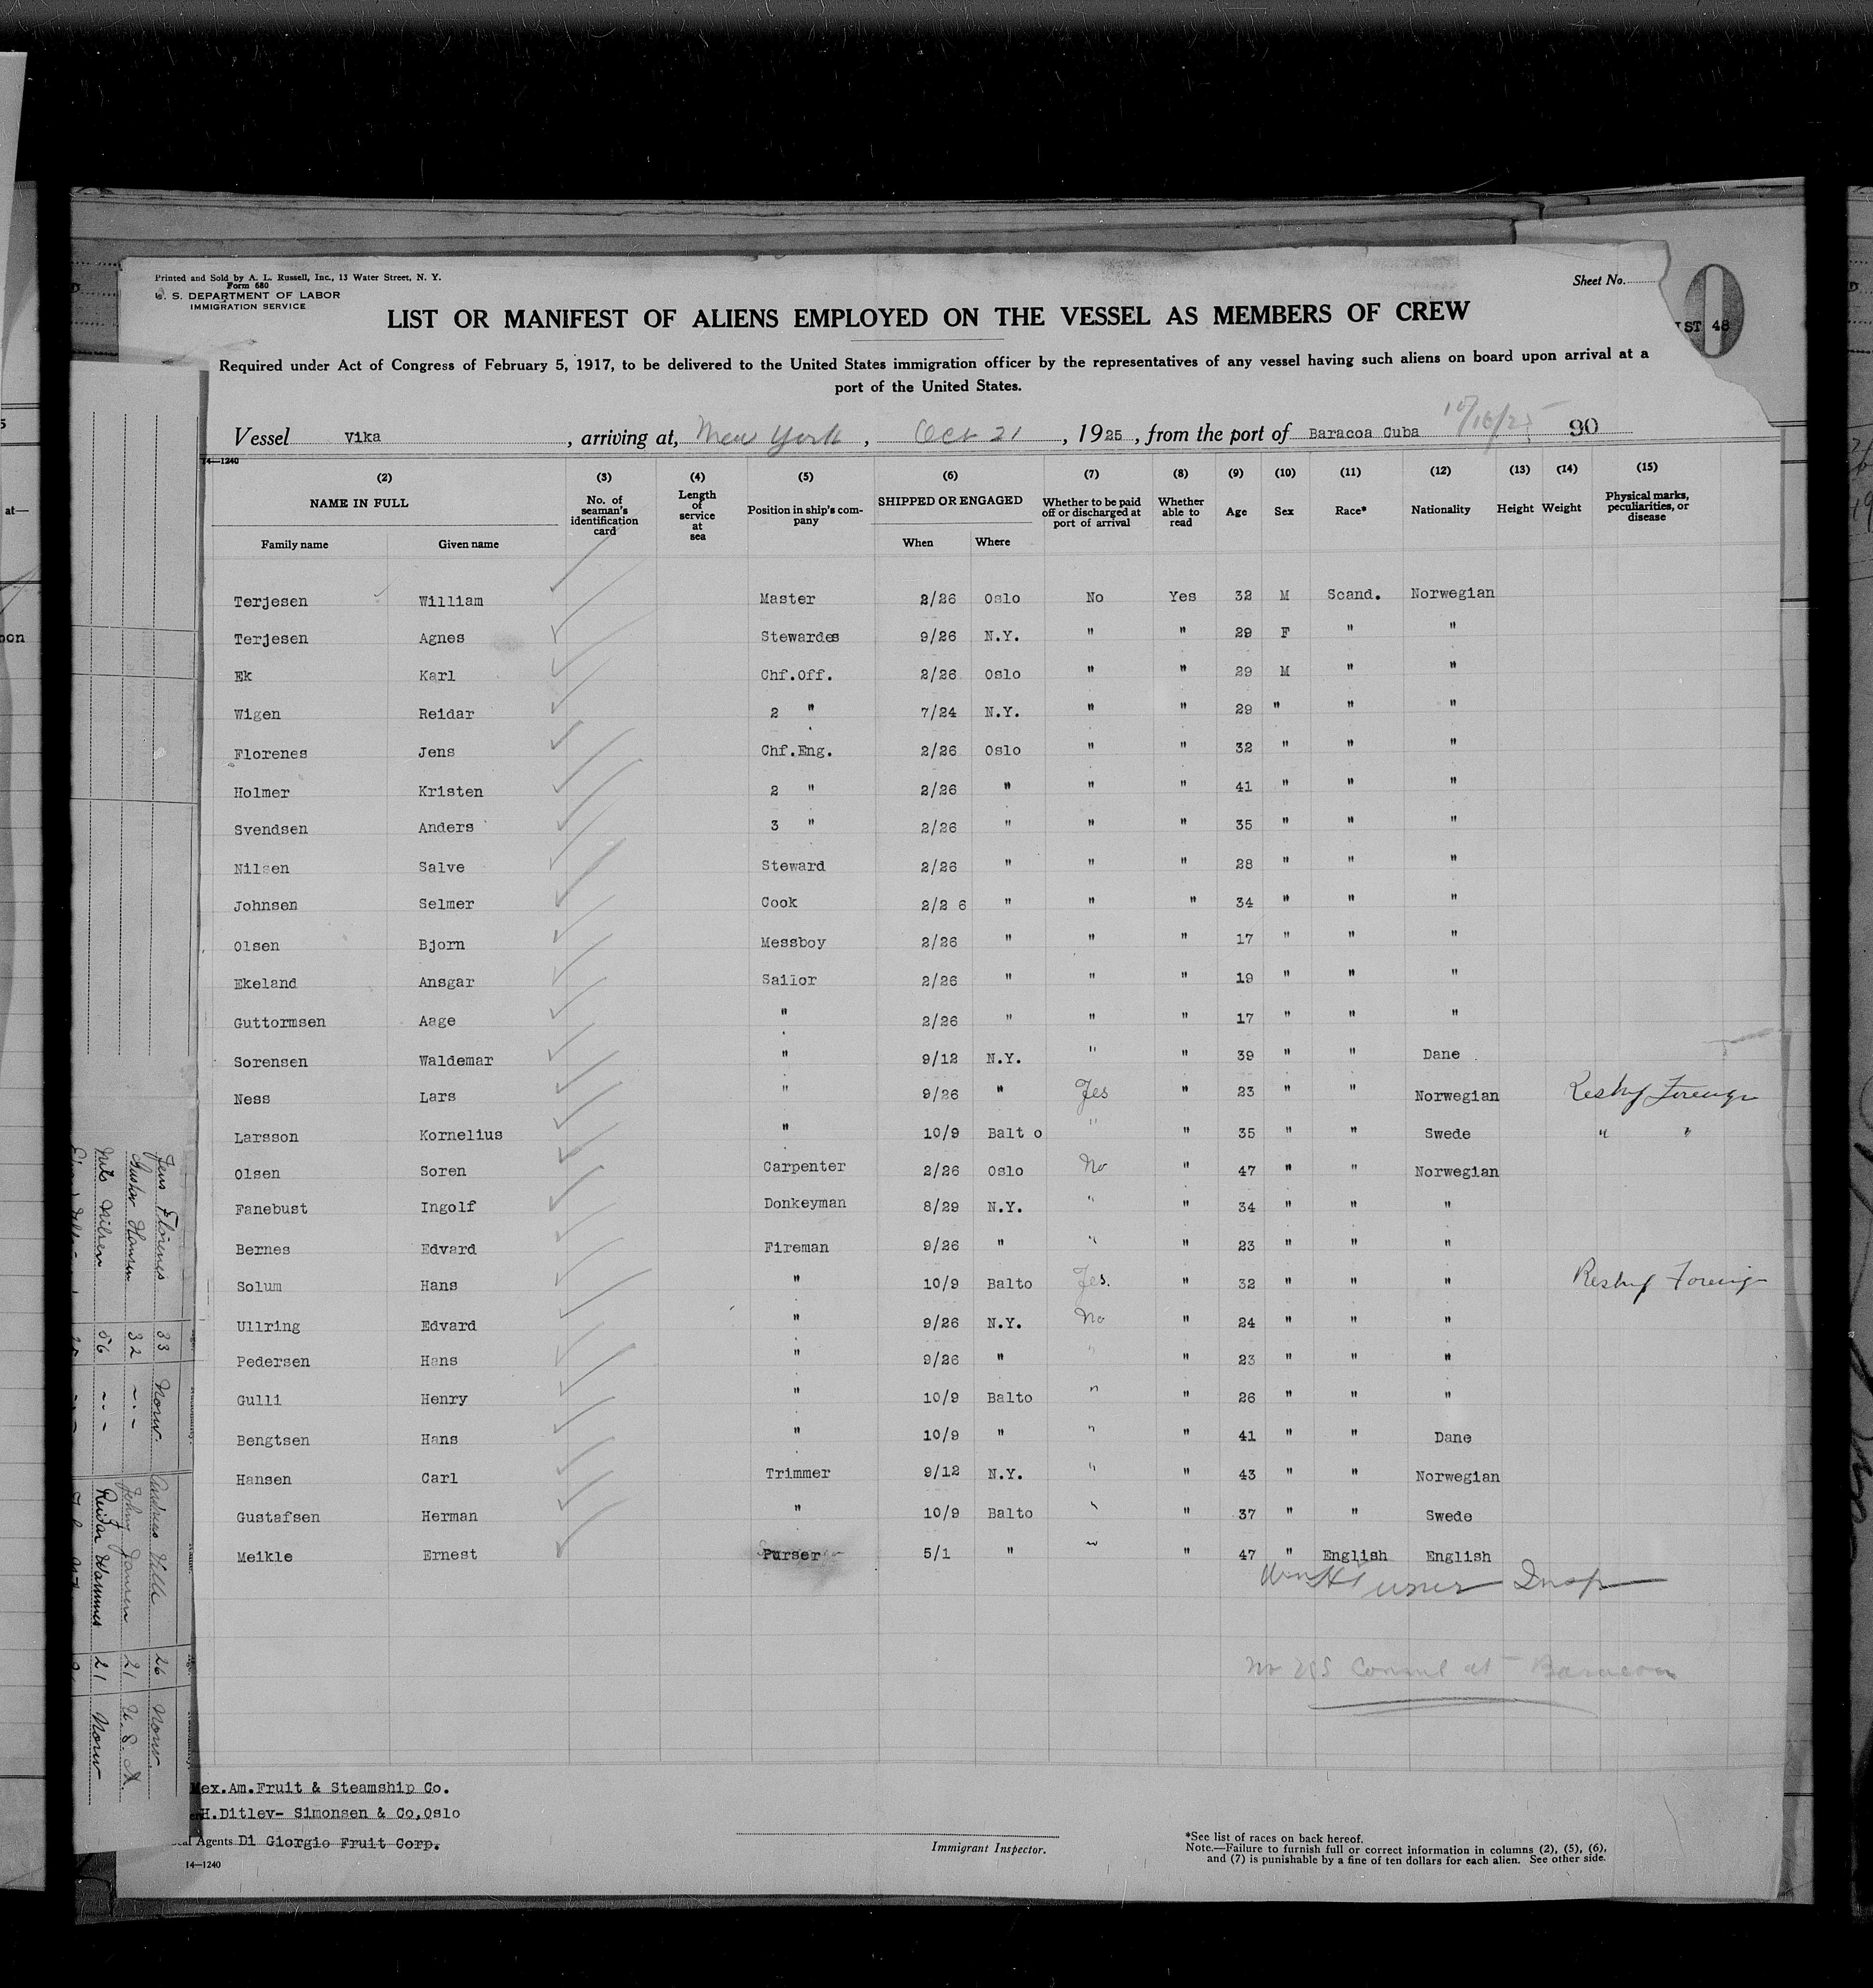 Printed and Sold by A. L. Russell, Inc., 13 Water Street, N. Y.
Form 680
U. S. DEPARTMENT OF LABOR
IMMIGRATION SERVICE
Sheet No.
ST 48
LIST OR MANIFEST OF ALIENS EMPLOYED ON THE VESSEL AS MEMBERS OF CREW
Required under Act of Congress of February 5, 1917, to be delivered to the United States immigration officer by the representatives of any vessel having such aliens on board upon arrival at a
port of the United States.
Vessel Vika, arriving at, New York, Oct 21, 1925, from the port of Baracoa Cuba 10/16/25 90
14—1240
(2) (3) (4) (5) (6) (7) (8) (9) (10) (11) (12) (13) (14) (15)
NAME IN FULL No. of seaman's identification card Length of service at sea Position in ship's company SHIPPED OR ENGAGED Whether to be paid off or discharged at port of arrival Whether able to read Age Sex Race* Nationality Height Weight Physical marks, peculiarities, or disease
Family name Given name When Where
Terjesen William Master 2/26 Oslo No Yes 32 M Scand. Norwegian
Terjesen Agnes Stewardes 9/26 N.Y. " " 29 F " "
Ek Karl Chf.Off. 2/26 Oslo " " 29 M " "
Wigen Reidar 2 " 7/24 N.Y. " " 29 " " "
Florenes Jens Chf.Eng. 2/26 Oslo " " 32 " " "
Holmer Kristen 2 " 2/26 " " " 41 " " "
Svendsen Anders 3 " 2/26 " " " 35 " " "
Nilsen Salve Steward 2/26 " " " 28 " " "
Johnsen Selmer Cook 2/2 6 " " " 34 " " "
Olsen Bjorn Messboy 2/26 " " " 17 " " "
Ekeland Ansgar Sailor 2/26 " " " 19 " " "
Guttormsen Aage " 2/26 " " " 17 " " "
Sorensen Waldemar " 9/12 N.Y. " " 39 " " Dane
Ness Lars " 9/26 " Yes " 23 " " Norwegian Reshf Foreign
Larsson Kornelius " 10/9 Balt o " " 35 " " Swede " "
Olsen Soren Carpenter 2/26 Oslo No " 47 " " Norwegian
Fanebust Ingolf Donkeyman 8/29 N.Y. " " 34 " " "
Bernes Edvard Fireman 9/26 " " " 23 " " "
Solum Hans " 10/9 Balto Yes. " 32 " " " Reshf Foreign
Ullring Edvard " 9/26 N.Y. No " 24 " " "
Pedersen Hans " 9/26 " " " 23 " " "
Gulli Henry " 10/9 Balto " " 26 " " "
Bengtsen Hans " 10/9 " " " 41 " " Dane
Hansen Carl Trimmer 9/12 N.Y. " " 43 " " Norwegian
Gustafsen Herman " 10/9 Balto " " 37 " " Swede
Meikle Ernest Purser 5/1 " " " 47 " English English
Wm H Turner Insp
No US Consul at Baracoa
Mex.Am.Fruit & Steamship Co.
H.Ditlev- Simonsen & Co,Oslo
Agents Di Giorgio Fruit Corp.
14—1240
Immigrant Inspector.
*See list of races on back hereof.
Note.—Failure to furnish full or correct information in columns (2), (5), (6),
and (7) is punishable by a fine of ten dollars for each alien. See other side.
Jens Florenes 33 Norw. 26 Norw.
Gustav Hansen 32 Johny Jansen 21 U. S. A.
Nils Nilsen 56 Reidar Hannes 21 Norw